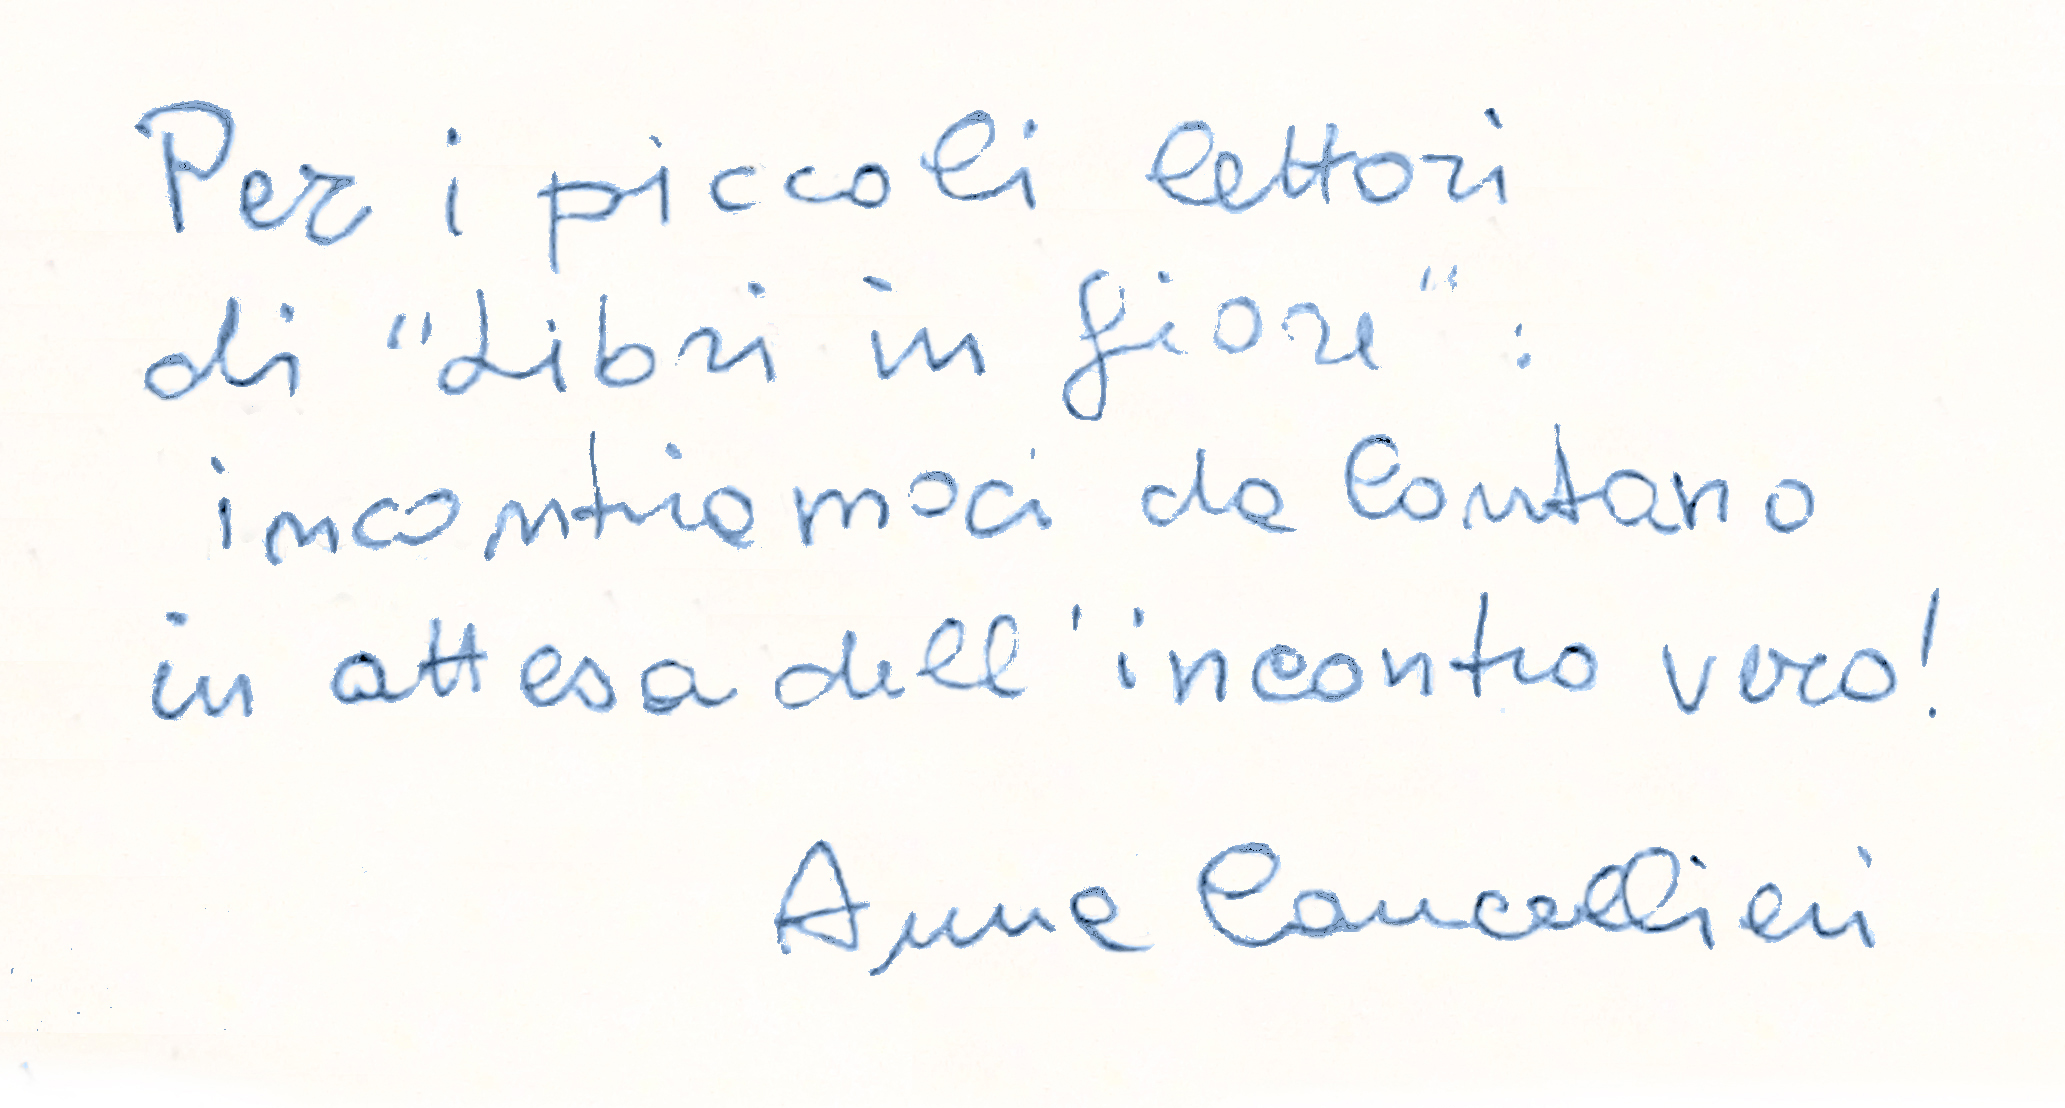 Per i piccoli lettori
di "Libri in fiore":
incontriamoci da lontano
in attesa dell'incontro vero!
Anna Cancellieri